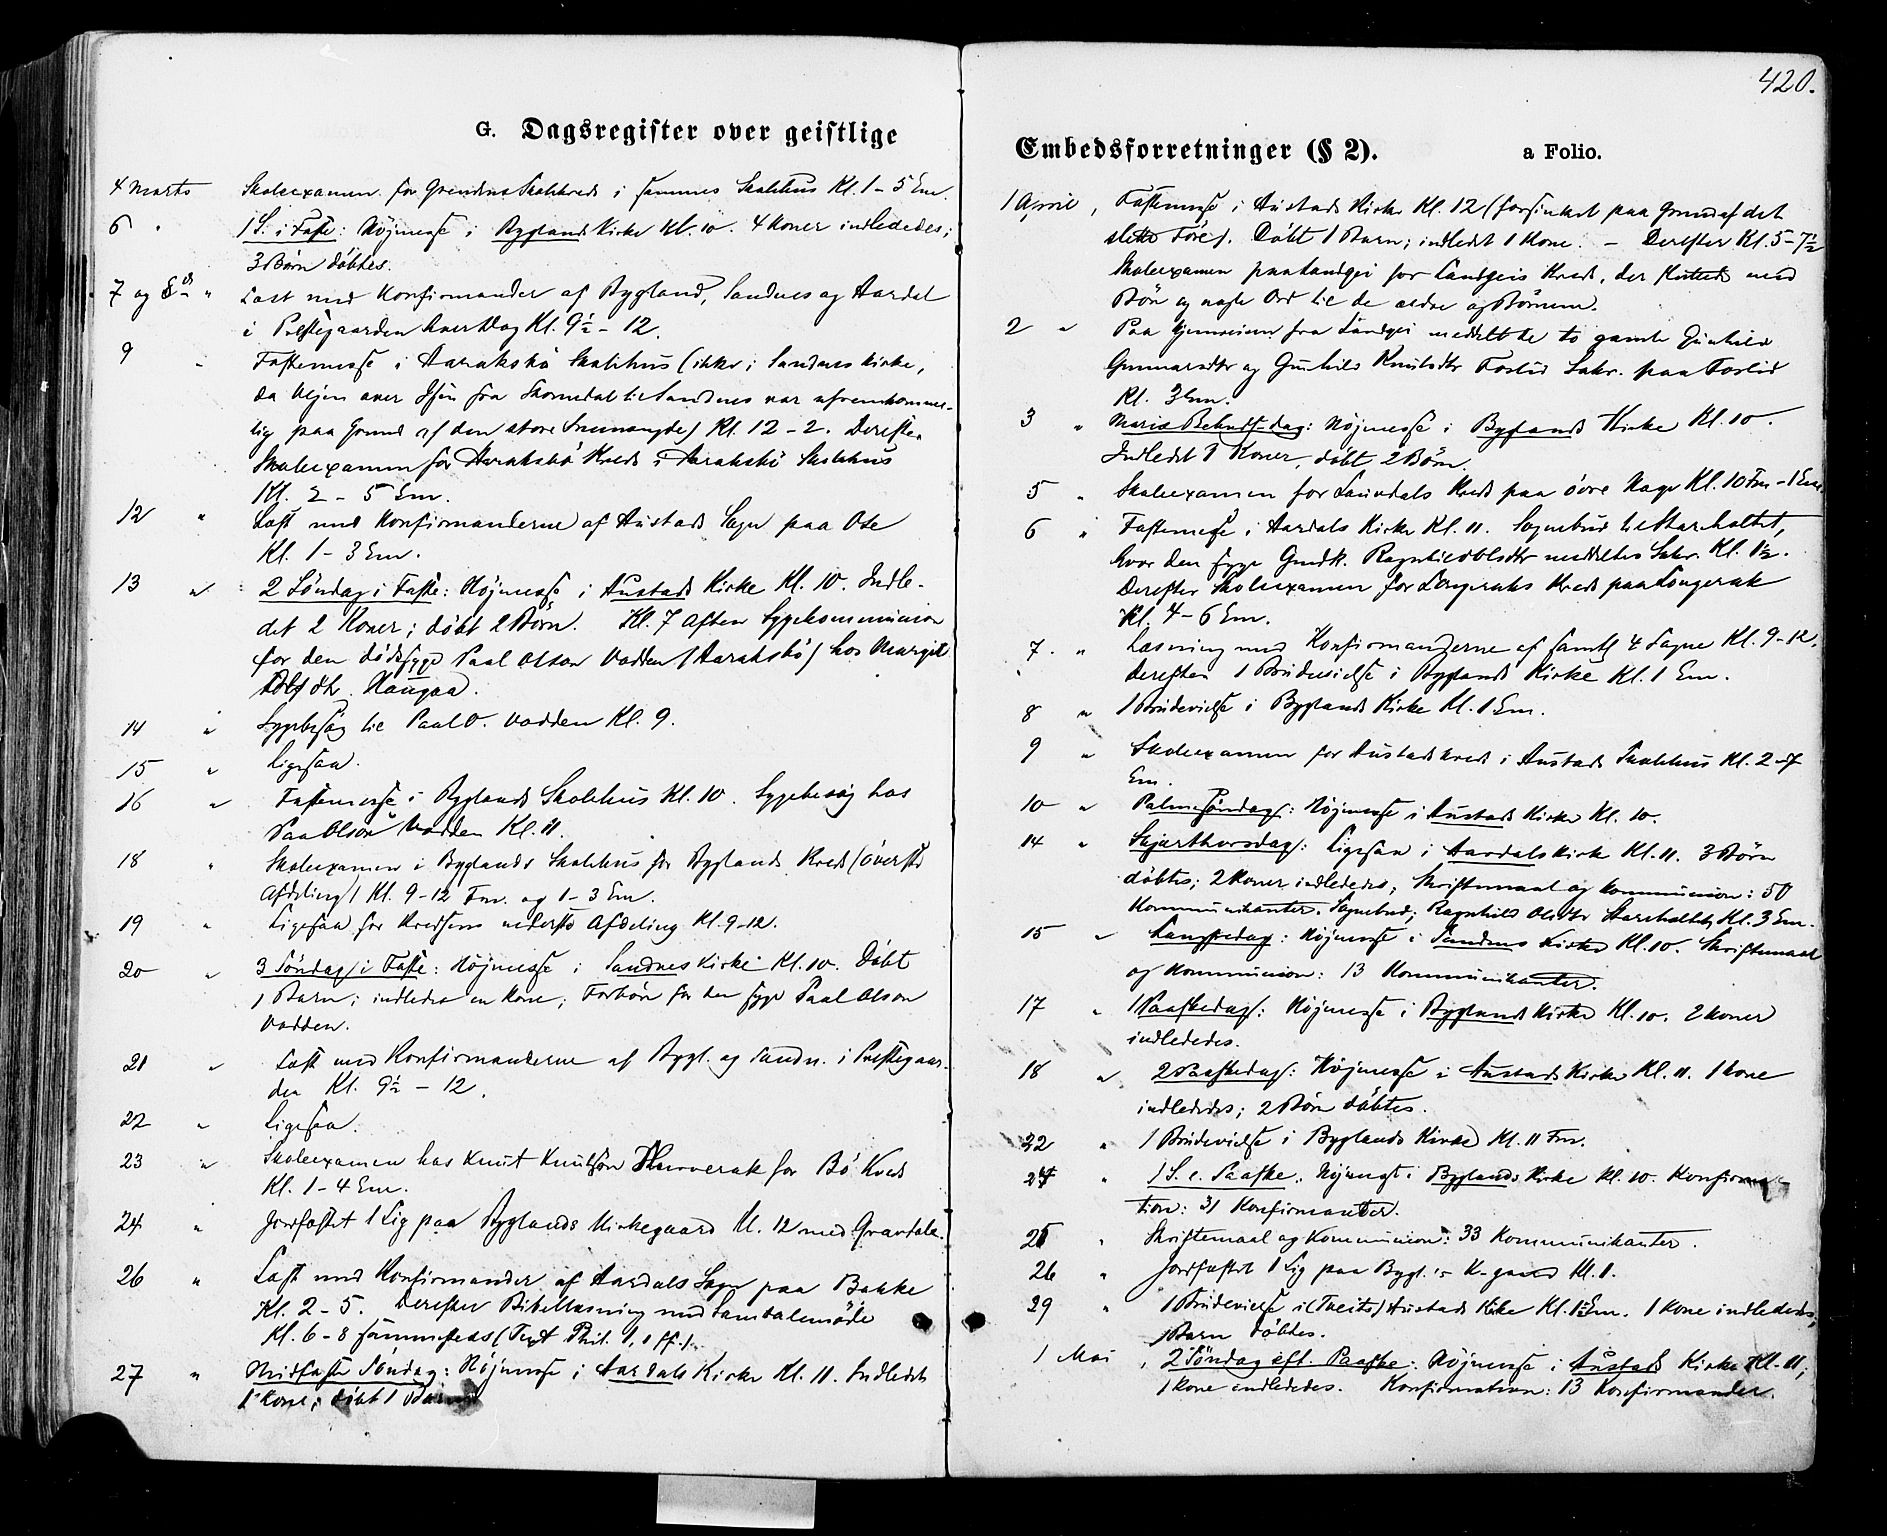 420.
G. Dagsregister over geistlige
4 Marts Skoleexamen for Grendens Skolekreds i sammes Skolehus Kl. 1 - 5 Em.
6 " 1 S. i Faste: Højmesse i Byglands Kirke Kl. 10. 4 Koner indlededes;
3 Børn døbtes.
7 og 8de " Læst med Konfirmander af Bygland, Sandnes og Aardal
i Præstegaarden hver Dag Kl. 9½ - 12.
9 " Fastemesse i Aarakbø Skolehus (ikke i Sandnes Kirke,
da Vejen over Isen fra Skomedal til Sandnes var ufremkomme-
lig paa Grund af den store Snemængde) Kl. 12 - 2. Derefter
Skoleexamen for Aaraksbø Kreds i Aaraksbø Skolehus
Kl. 2 - 5 Em.
12 " Læst med Konfirmanderne af Austad Sogn paa Ose
Kl. 1 - 3 Em.
13 " 2 Søndag i Faste: Højmesse i Austads Kirke Kl. 10. Indle-
det 2 Koner; døbt 2 Børn. Kl. 7 Aften Sygekommunion
for den dødssyge Paal Olson Vadden (Aaraksbø) hos Margit
Haugaa.
14 " Sygebesøg til Paal O. Vadden Kl. 9.
15 " Ligesaa.
16 " Fastemesse i Byglands Skolehus Kl. 10. Sygebesøg hos
Paal Olson Vadden Kl. 11.
18 " Skoleexamen i Byglands Skolehus for Byglands Kreds (øverste
Afdeling) Kl. 9-12 Fm. og 1-3 Em.
19 " Ligesaa for Kredsens nederste Afdeling Kl. 9-12.
20 " 3 Søndag i Faste: Højmesse i Sandnes Kirke Kl. 10. Døbt
1 Barn; indledet en Kone; Forbøn for den syge Paal Olson
Vadden.
21 " Læst med Konfirmanderne af Bygl. og Sandn. i Præstegaar-
den Kl. 9½ - 12.
22 " Ligesaa.
23 " Skoleexamen hos Knut Knutsøn for Bø Kreds
Kl. 1-4 Em.
24 " Jordfæstet 1 Lig paa Byglands Kirkegaard Kl. 12 med Gravtale.
26 " Læst med Konfirmander af Aardals Sogn paa Bakke
Kl. 2-5. Derefter Bibellæsning med Samtalemøde
Kl. 6-8 sammesteds (Text Phil. 1, 1 ff.).
27 " Midfaste Søndag: Højmesse i Aardals Kirke Kl. 11. Indledet
1 Kone; døbt 1 Barn.
Embedsforretninger (§ 2). a Folio.
1 April, Fastemesse i Austads Kirke Kl. 12 (forsinket paa Grund af det
slette Føre). Døbt 1 Barn; indledt 1 Kone. - Derefter Kl. 5-7½
Skoleexamen paa Landgei for Landgeis Kreds, der sluttedes med
Bøn og nogle Ord til de ældre og Børnene.
2 " Paa Hjemreisen fra Landgei meddelt de to gamle Gunhild
Gunnarsdtr og Gunhild Knutsdtr Froslid Sakr. paa Froslid
Kl. 3 Em.
3 " Mariæ Bebud.dag: Højmesse i Byglands Kirke Kl. 10.
Indledet 1 Koner, døbt 2 Børn.
5 " Skoleexamen for Lauvdals Kreds paa øvre Hage Kl. 10 Fm - 1 Em.
6 " Fastemesse i Aardals Kirke Kl. 11. Sognebud til Storholtet,
hvor den syge Gmdk. Ragnhild Olsdtr meddeltes Sakr. Kl. 1½.
Derefter Skoleexamen for Longeraks Kreds paa Longerak
Kl. 4-6 Em.
7 " Læsning med Konfirmanderne af samtl 4 Sogne Kl. 9-12.
Derefter 1 Brudevielse i Byglands Kirke Kl. 1 Em.
8 " 1 Brudevielse i Byglands Kirke Kl. 1 Em.
9 " Skoleexamen for Austads Kreds i Austads Skolehus Kl. 2-7
Em.
10 " Palmesøndag: Højmesse i Austads Kirke Kl. 10.
14 " Skjærthorsdag: Ligesaa i Aardals Kirke Kl. 11. 3 Børn
døbtes; 2 Koner indlededes; Skriftemaal og Kommunion: 50
Kommunikanter. Sognebud; Ragnhild Olsdtr Storholtet, Kl. 3 Em.
15 " Langfredag: Højmesse i Sandnes Kirke Kl. 10. Skriftemaal
og Kommunion: 13 Kommunikanter.
17 " 1 Paaskedag: Højmesse i Byglands Kirke Kl. 10. 2 Koner
indlededes.
18 " 2 Paaskedag: Højmesse i Austads Kirke Kl. 11. 1 Kone
indlededes; 2 Børn døbtes.
22 " 1 Brudevielse i Byglands Kirke Kl. 11 Fm.
24 " 1 S. e. Paaske. Højmesse i Byglands Kirke Kl. 10. Konfirma-
tion: 31 Konfirmander.
25 " Skriftemaal og Kommunion: 33 Kommunikanter.
26 " Jordfæstet 1 Lig paa Bygl.'s K-gaard Kl. 1.
29 " 1 Brudevielse i (Tveits) Austads Kirke Kl. 1½ Em. 1 Kone indlededes;
1 Barn døbtes.
1 Mai, 2 Søndag eft. Paaske: Højmesse i Austads Kirke Kl. 11;
1 Kone indlededes. Konfirmation: 13 Konfirmander.